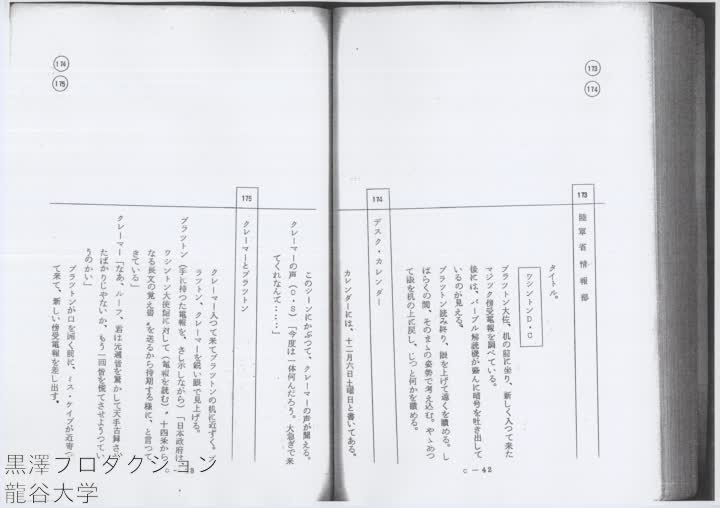 173
174
173
陸軍省情報部
タイトル。
ワシントンD・C
ブラツトン大佐、机の前に坐り、新しく入つて来た
マジツク傍受電報を調べている。
後には、パープル解読機が盛んに暗号を吐き出して
いるのが見える。
ブラツトン読み終り、眼を上げて遠くを眺める。し
ばらくの間、そのまゝの姿勢で考え込む。やゝあつ
て眼を机の上に戻し、じつと何かを眺める。
174
デスク・カレンダー
カレンダーには、十二月六日土曜日と書いてある。
C－42
174
175
このシーンにかぶつて、クレーマーの声が聞える。
クレーマーの声(O・S)「今度は一体何んだろう。大急ぎで来
てくれなんて……」
175
クレーマーとブラツトン
クレーマー入つて来てブラツトンの机に近ずく。ブ
ラツトン、クレーマーを鋭い眼で見上げる。
ブラツトン(手に持つた電報を、さし示しながら)「日本政府は、
ワシントン大使館に対して(電報を読む)〝十四条から
なる長文の覚え書〟を送るから待期する様に、と言つて
きている」
クレーマー「なあ、ルーフ、君は元週皆を驚かして天手古舞さ
たばかりじやないか、もう一回皆を慌てさせようつてい
うのかい」
ブラツトンが口を開く前に、ミス・ケイブが近寄つ
て来て、新しい傍受電報を差し出す。
黒澤プロダクション
龍谷大学